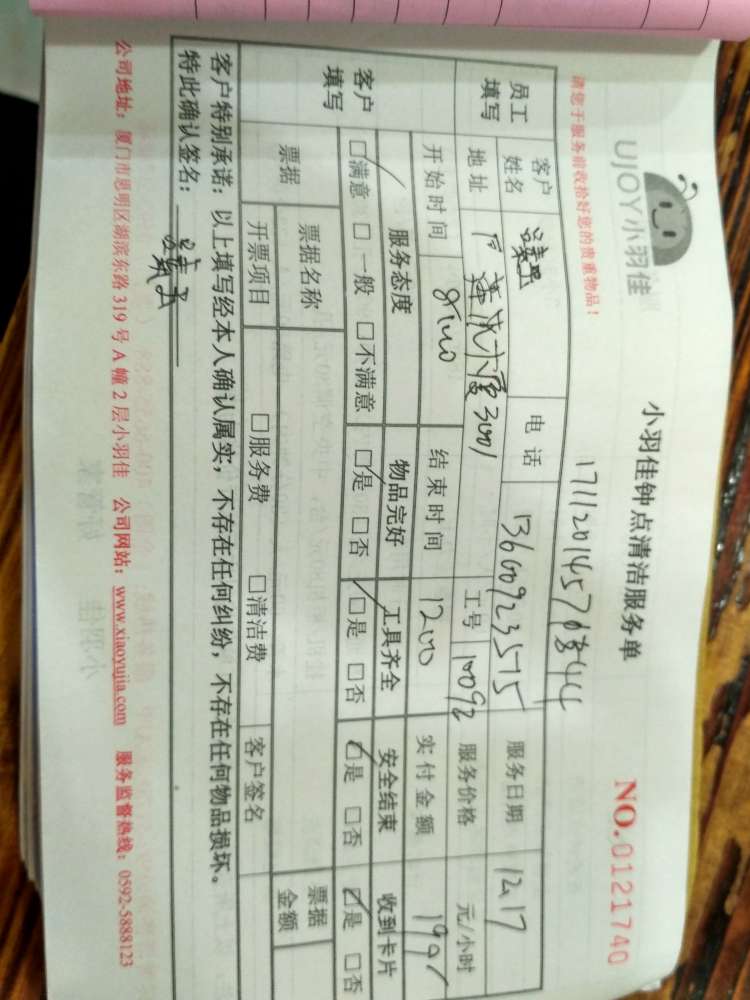 UJOY小羽佳
小羽佳钟点清洁服务单
NO.0121740
请您于服务前收拾好您的贵重物品！
员工填写
客户姓名 电话 13600923515 服务日期 12.17
地址 3001 工号 10092 服务价格 元/小时
开始时间 结束时间 1200 实付金额
客户填写
服务态度 物品完好 工具齐全 安全结束 收到卡片
□满意 □一般 □不满意 □是 □否 □是 □否 □是 □否 □是 □否
票据 票据名称 票据金额
开票项目 □服务费 □清洁费 客户签名
客户特别承诺：以上填写经本人确认属实，不存在任何纠纷，不存在任何物品损坏。
特此确认签名：
公司地址：厦门市思明区湖滨东路319号A幢2层小羽佳 公司网站：www.xiaoyujia.com 服务监督热线：0592-5888123